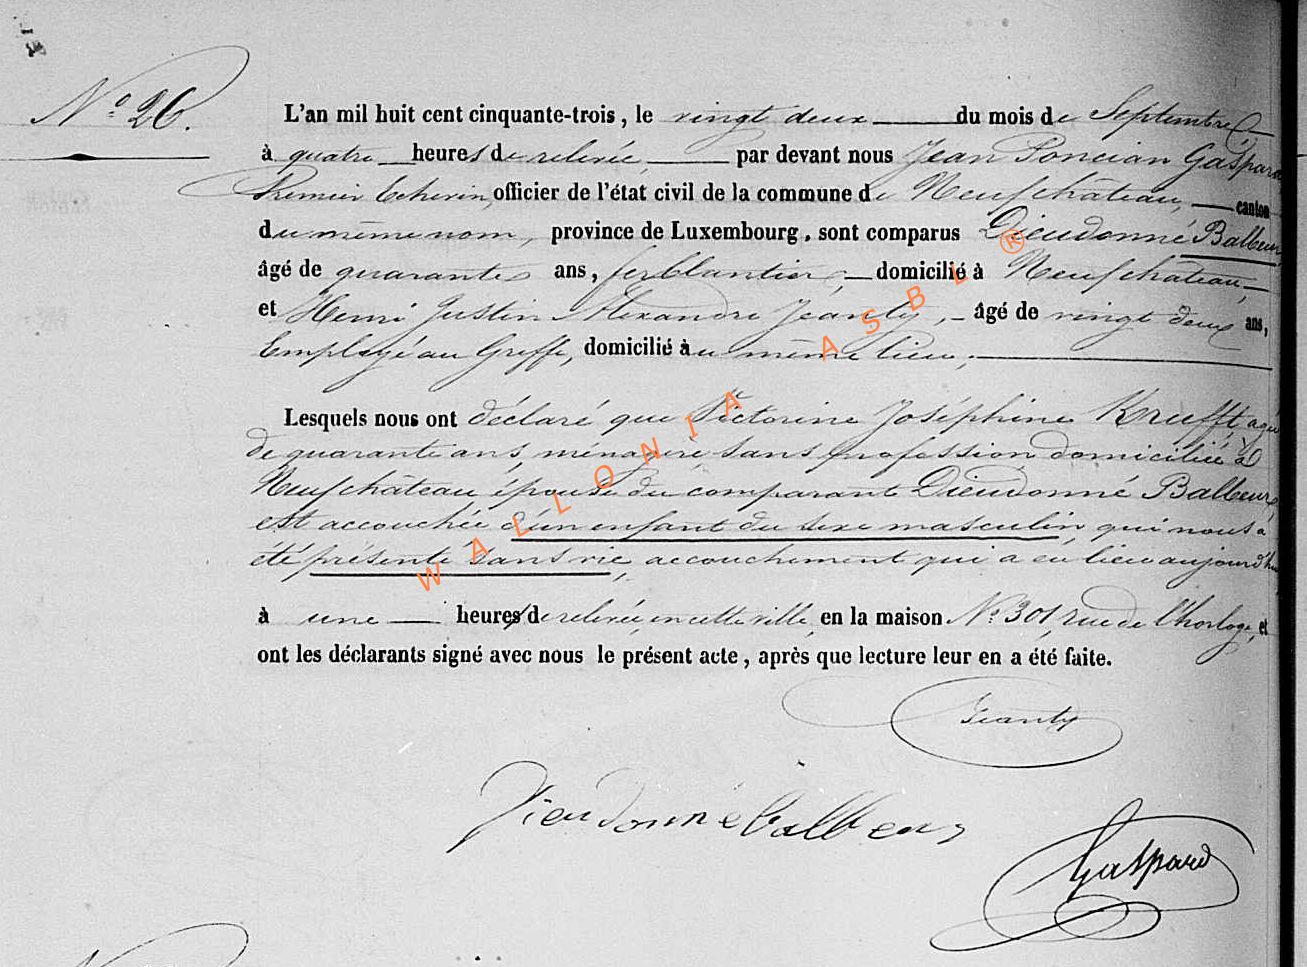 N.º 26.
L'an mil huit cent cinquante-trois, le vingt deux du mois de Septembre
à quatre heures de relevée, par devant nous Jean Poncian Gaspard
Premier Echevin, officier de l'état civil de la commune de Neufchâteau, canton
du même nom, province de Luxembourg, sont comparus Dieudonné Balbeur,
âgé de quarante ans, ferblantier, domicilié à Neufchâteau,
et Henri Justin Alexandre Jeanty, âgé de vingt deux ans,
Employé au Greffe, domicilié au même lieu;
Lesquels nous ont déclaré que Victorine Joséphine Krufft agée
de quarante ans, ménagère sans profession domiciliée à
Neufchâteau épouse du comparant Dieudonné Balbeur,
est accouchée d'un enfant du sexe masculin, qui nous a
été présenté sans vie, accouchement qui a eu lieu aujourd'hui
à une heure de relevée, en cette ville, en la maison N.º 301, rue de l'horloge, et
ont les déclarants signé avec nous le présent acte, après que lecture leur en a été faite.
Jeanty
Dieudonné Balbeur
Gaspard
WALLONIA ASBL ®